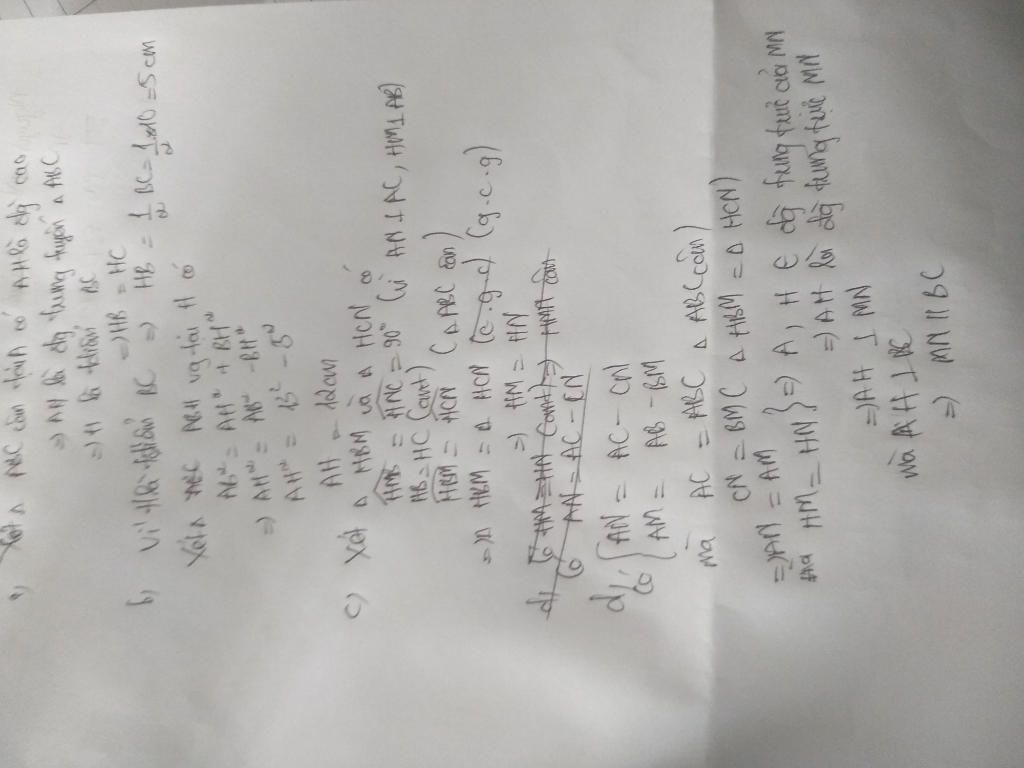 a) Xét Δ ABC cân tại A có AH là đg cao
⇒ AH là đg trung tuyến Δ ABC
⇒ H là t/điểm BC
⇒ HB = HC
b) Vì H là t/điểm BC ⇒ HB = 1/2 BC = 1/2 . 10 = 5 cm
Xét Δ ABH vg tại H có
AB² = AH² + BH²
⇒ AH² = AB² - BH²
AH² = 13² - 5²
AH = 12cm
c) Xét Δ HBM và Δ HCN có
HMB = HNC = 90° (vì AN ⊥ AC, HM ⊥ AB)
HB = HC (cmt)
HBM = HCN (Δ ABC cân)
⇒ Δ HBM = Δ HCN (c.g.c) (g.c.g)
⇒ HM = HN
d, Có HM = HN (cmt) ⇒ HMN cân
Có AN = AC - CN
d, Có { AN = AC - CN
AM = AB - BM
mà AC = ABC Δ ABC cân)
CN = BMC Δ HBM = Δ HCN)
⇒ AN = AM
mà HM = HN } ⇒ A, H ∈ đg trung trực của MN
⇒ AH là đg trung trực MN
⇒ AH ⊥ MN
mà AH ⊥ BC
⇒ MN // BC